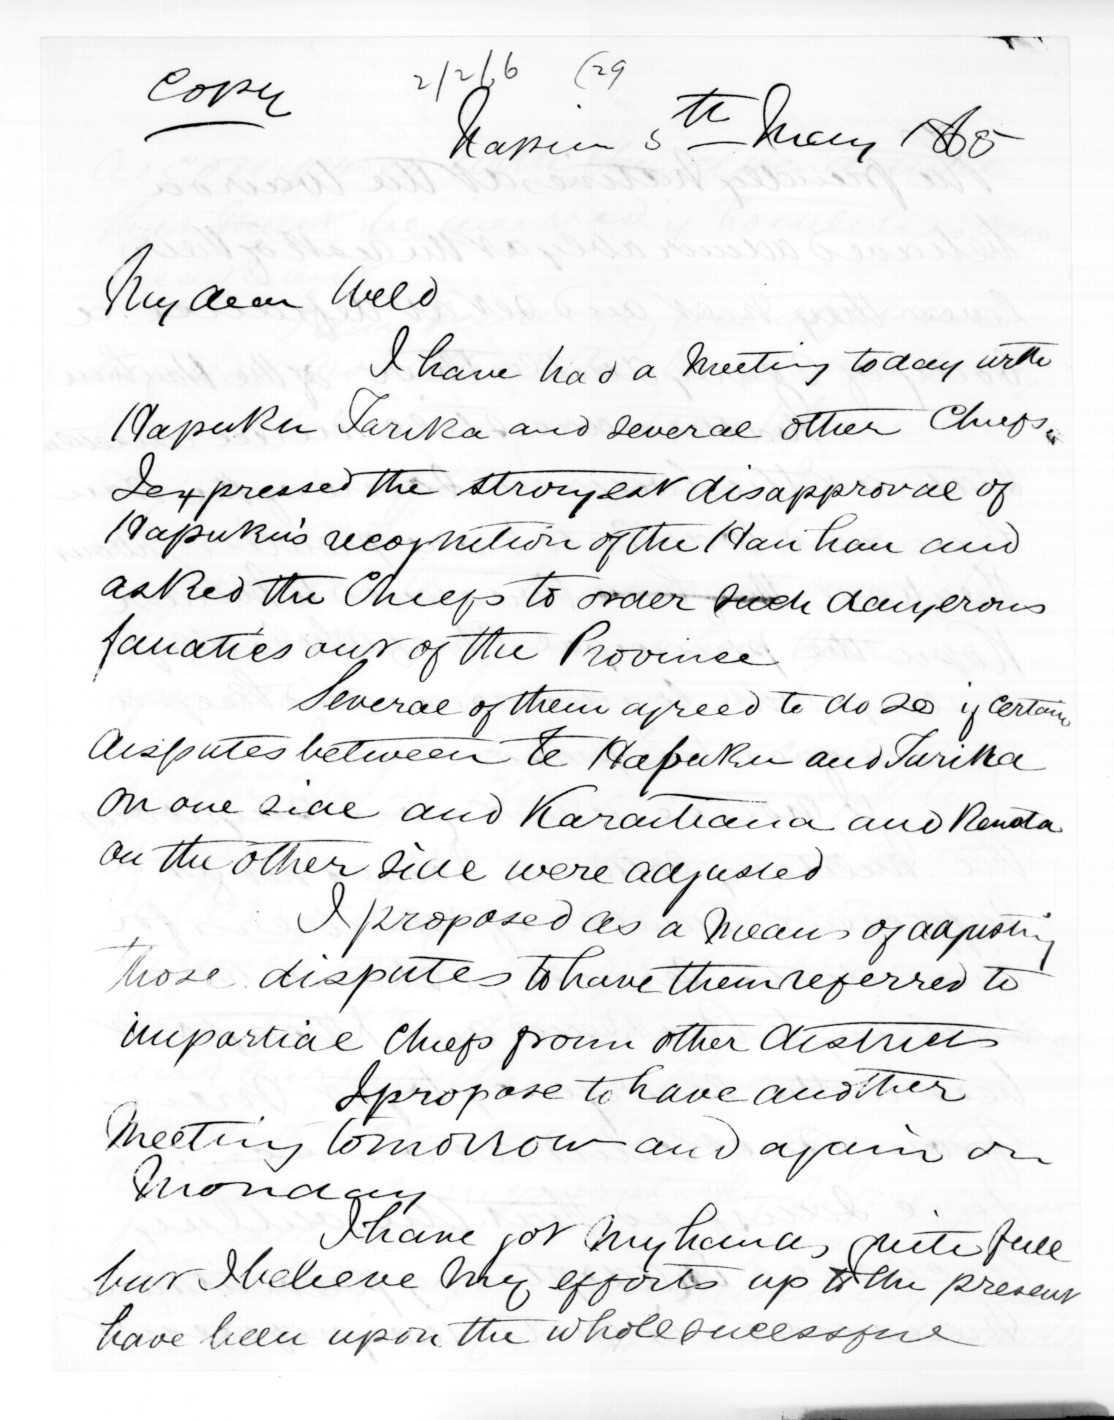 Copy
2/2/6 (29
Napier 5th May 1865
My dear Weld
I have had a Meeting today with
Hapuku Tarika and several other Chiefs.
I expressed the strongest disapproval of
Hapuku's recognition of the Hau hau and
asked the Chiefs to order such dangerous
fanatics out of the Province
Several of them agreed to do so if certain
disputes between Te Hapuku and Tarika
on one side and Karaitiana and Renata
on the other side were adjusted
I proposed as a Means of adjusting
those disputes to have them referred to
impartial Chiefs from other districts
I propose to have another
Meeting tomorrow and again on
Monday
I have got My hands quite full
but I believe My efforts up to the present
have been upon the whole successful